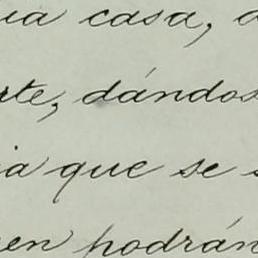 ua casa,
rte, dándos
ia que se s
en podrán